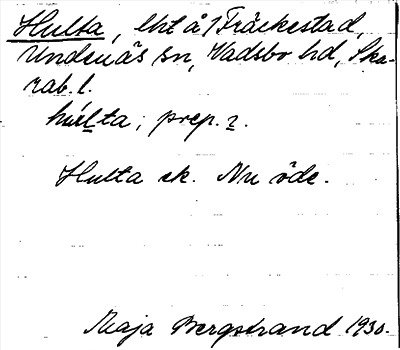 Hulta, lht å 1 Fräckestad,
Undenäs sn, Vadsbo hd, Ska-
rab. l.
húlta; prep. 2.
Hulta sk. Nu öde.
Maja Bergstrand 1930.